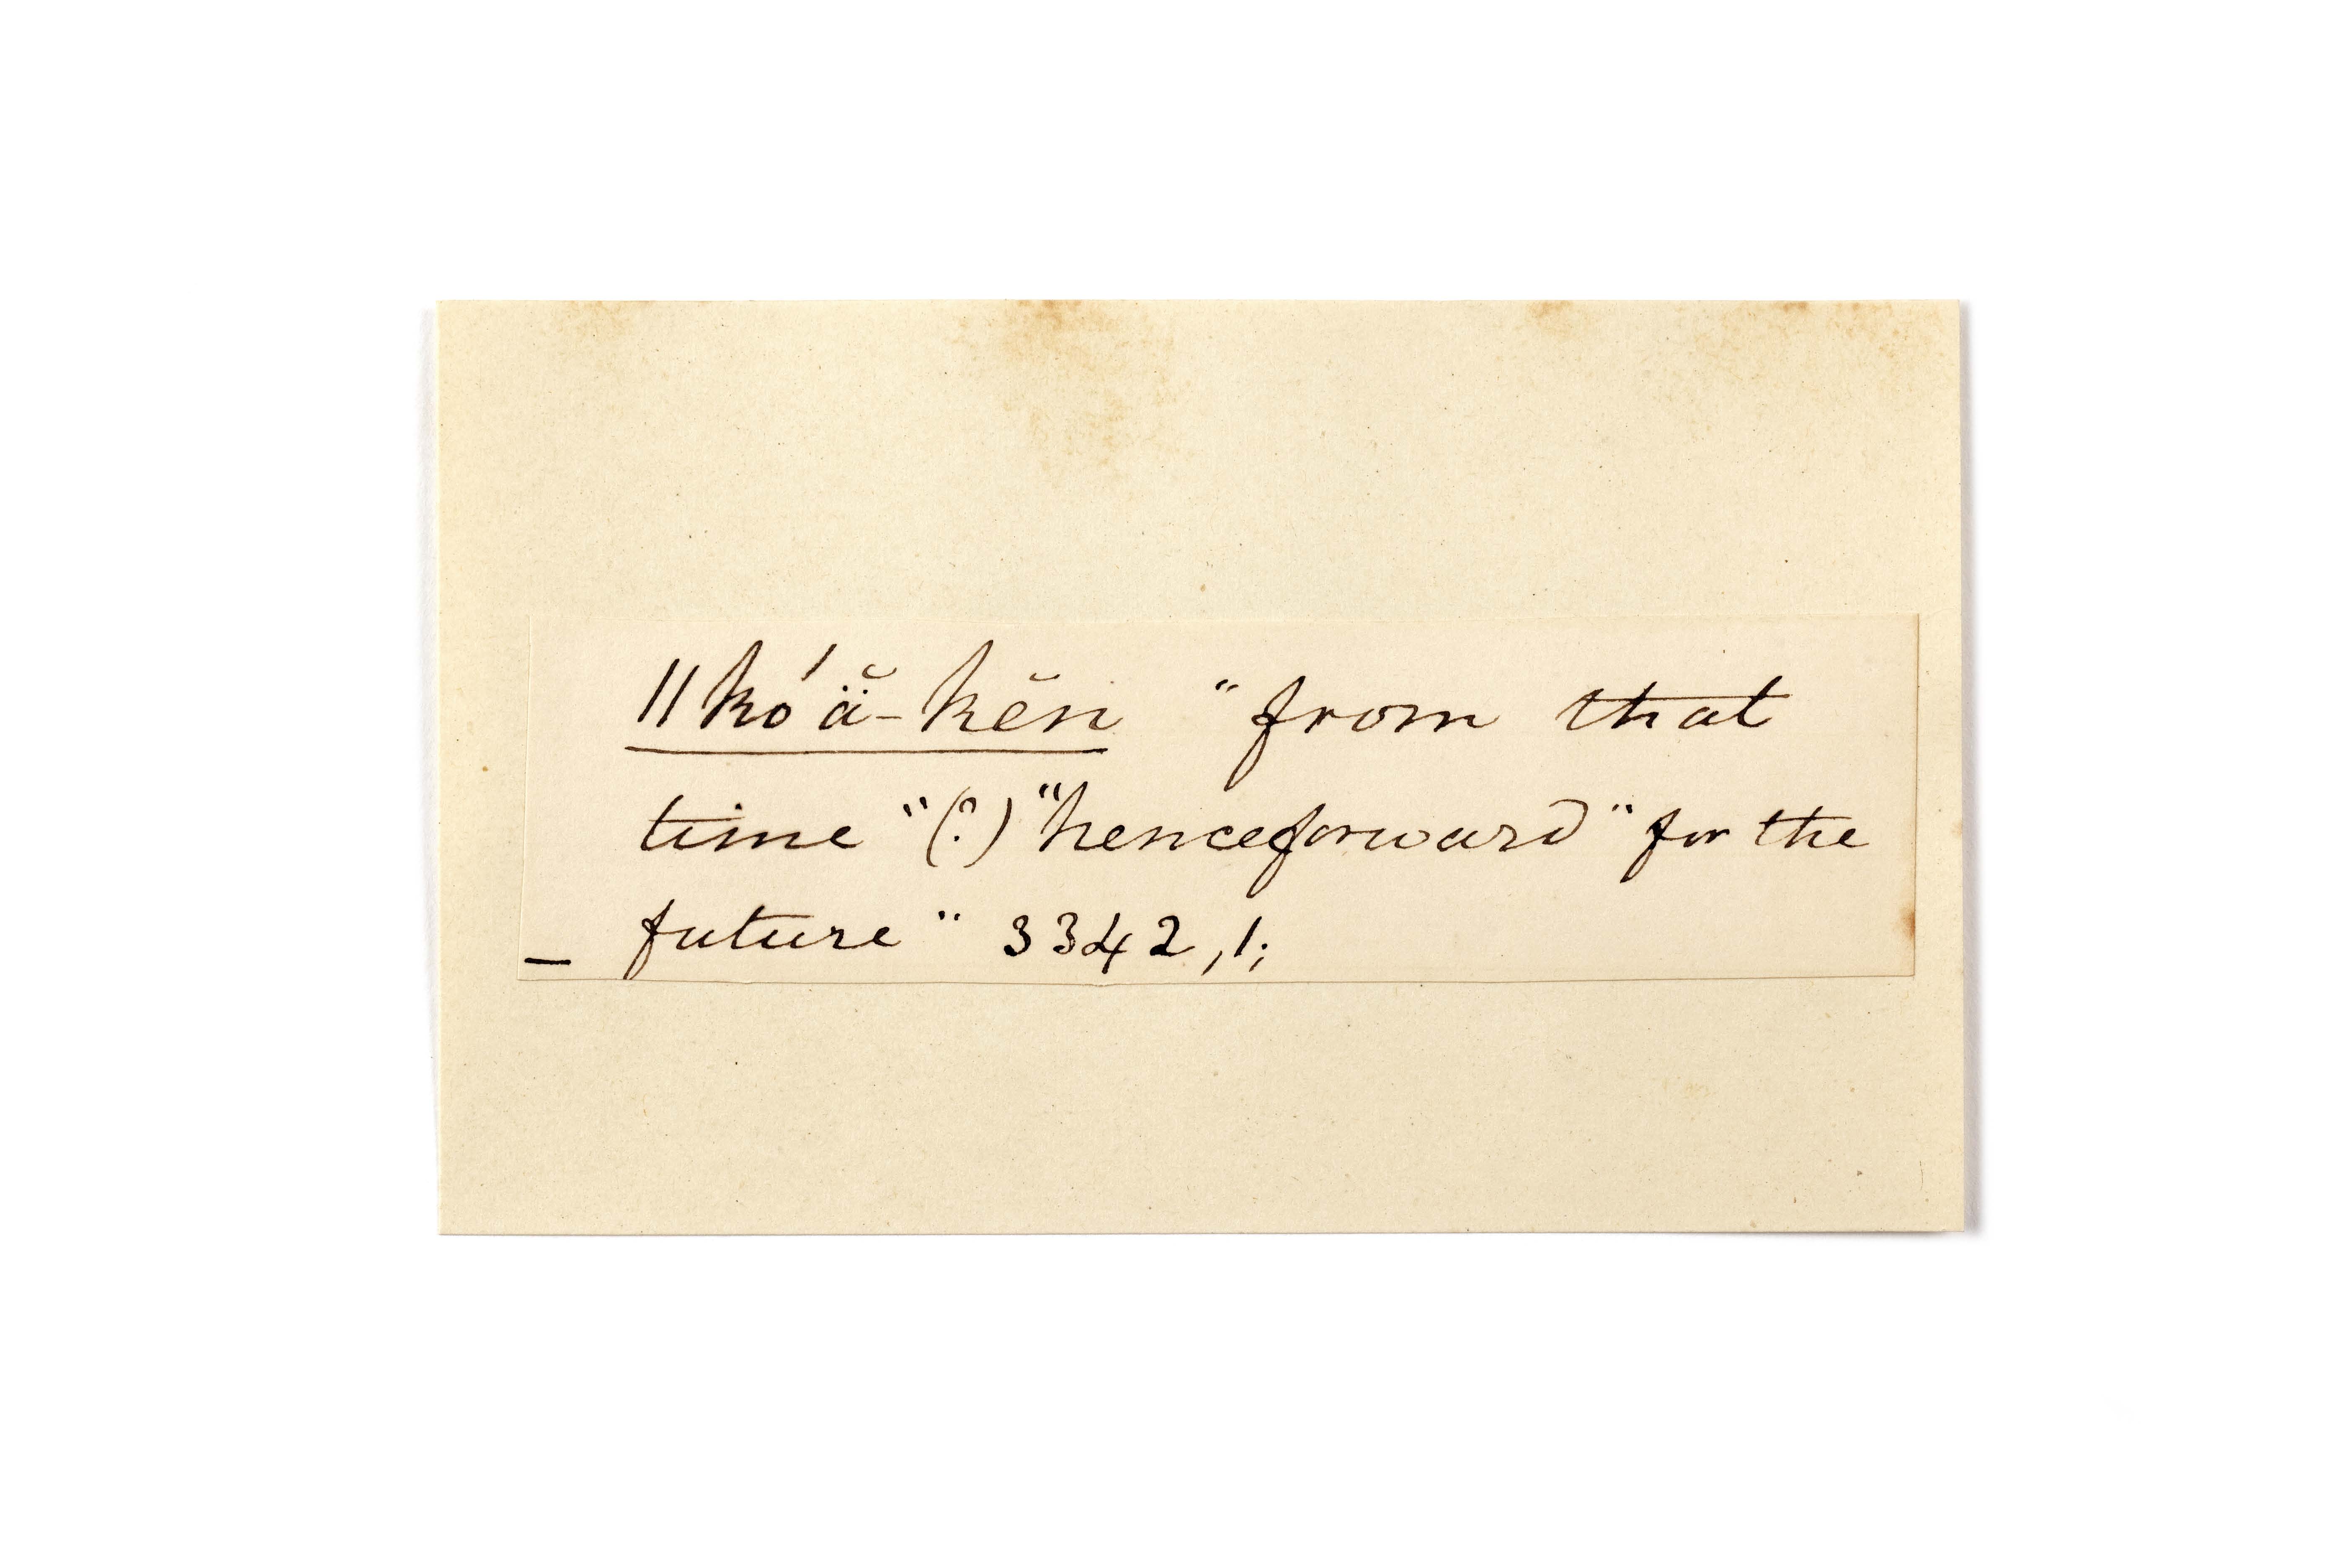 ||kó´ä̆-kĕn "from that
time" (?) "henceforward" for the
future" 3342, 1;